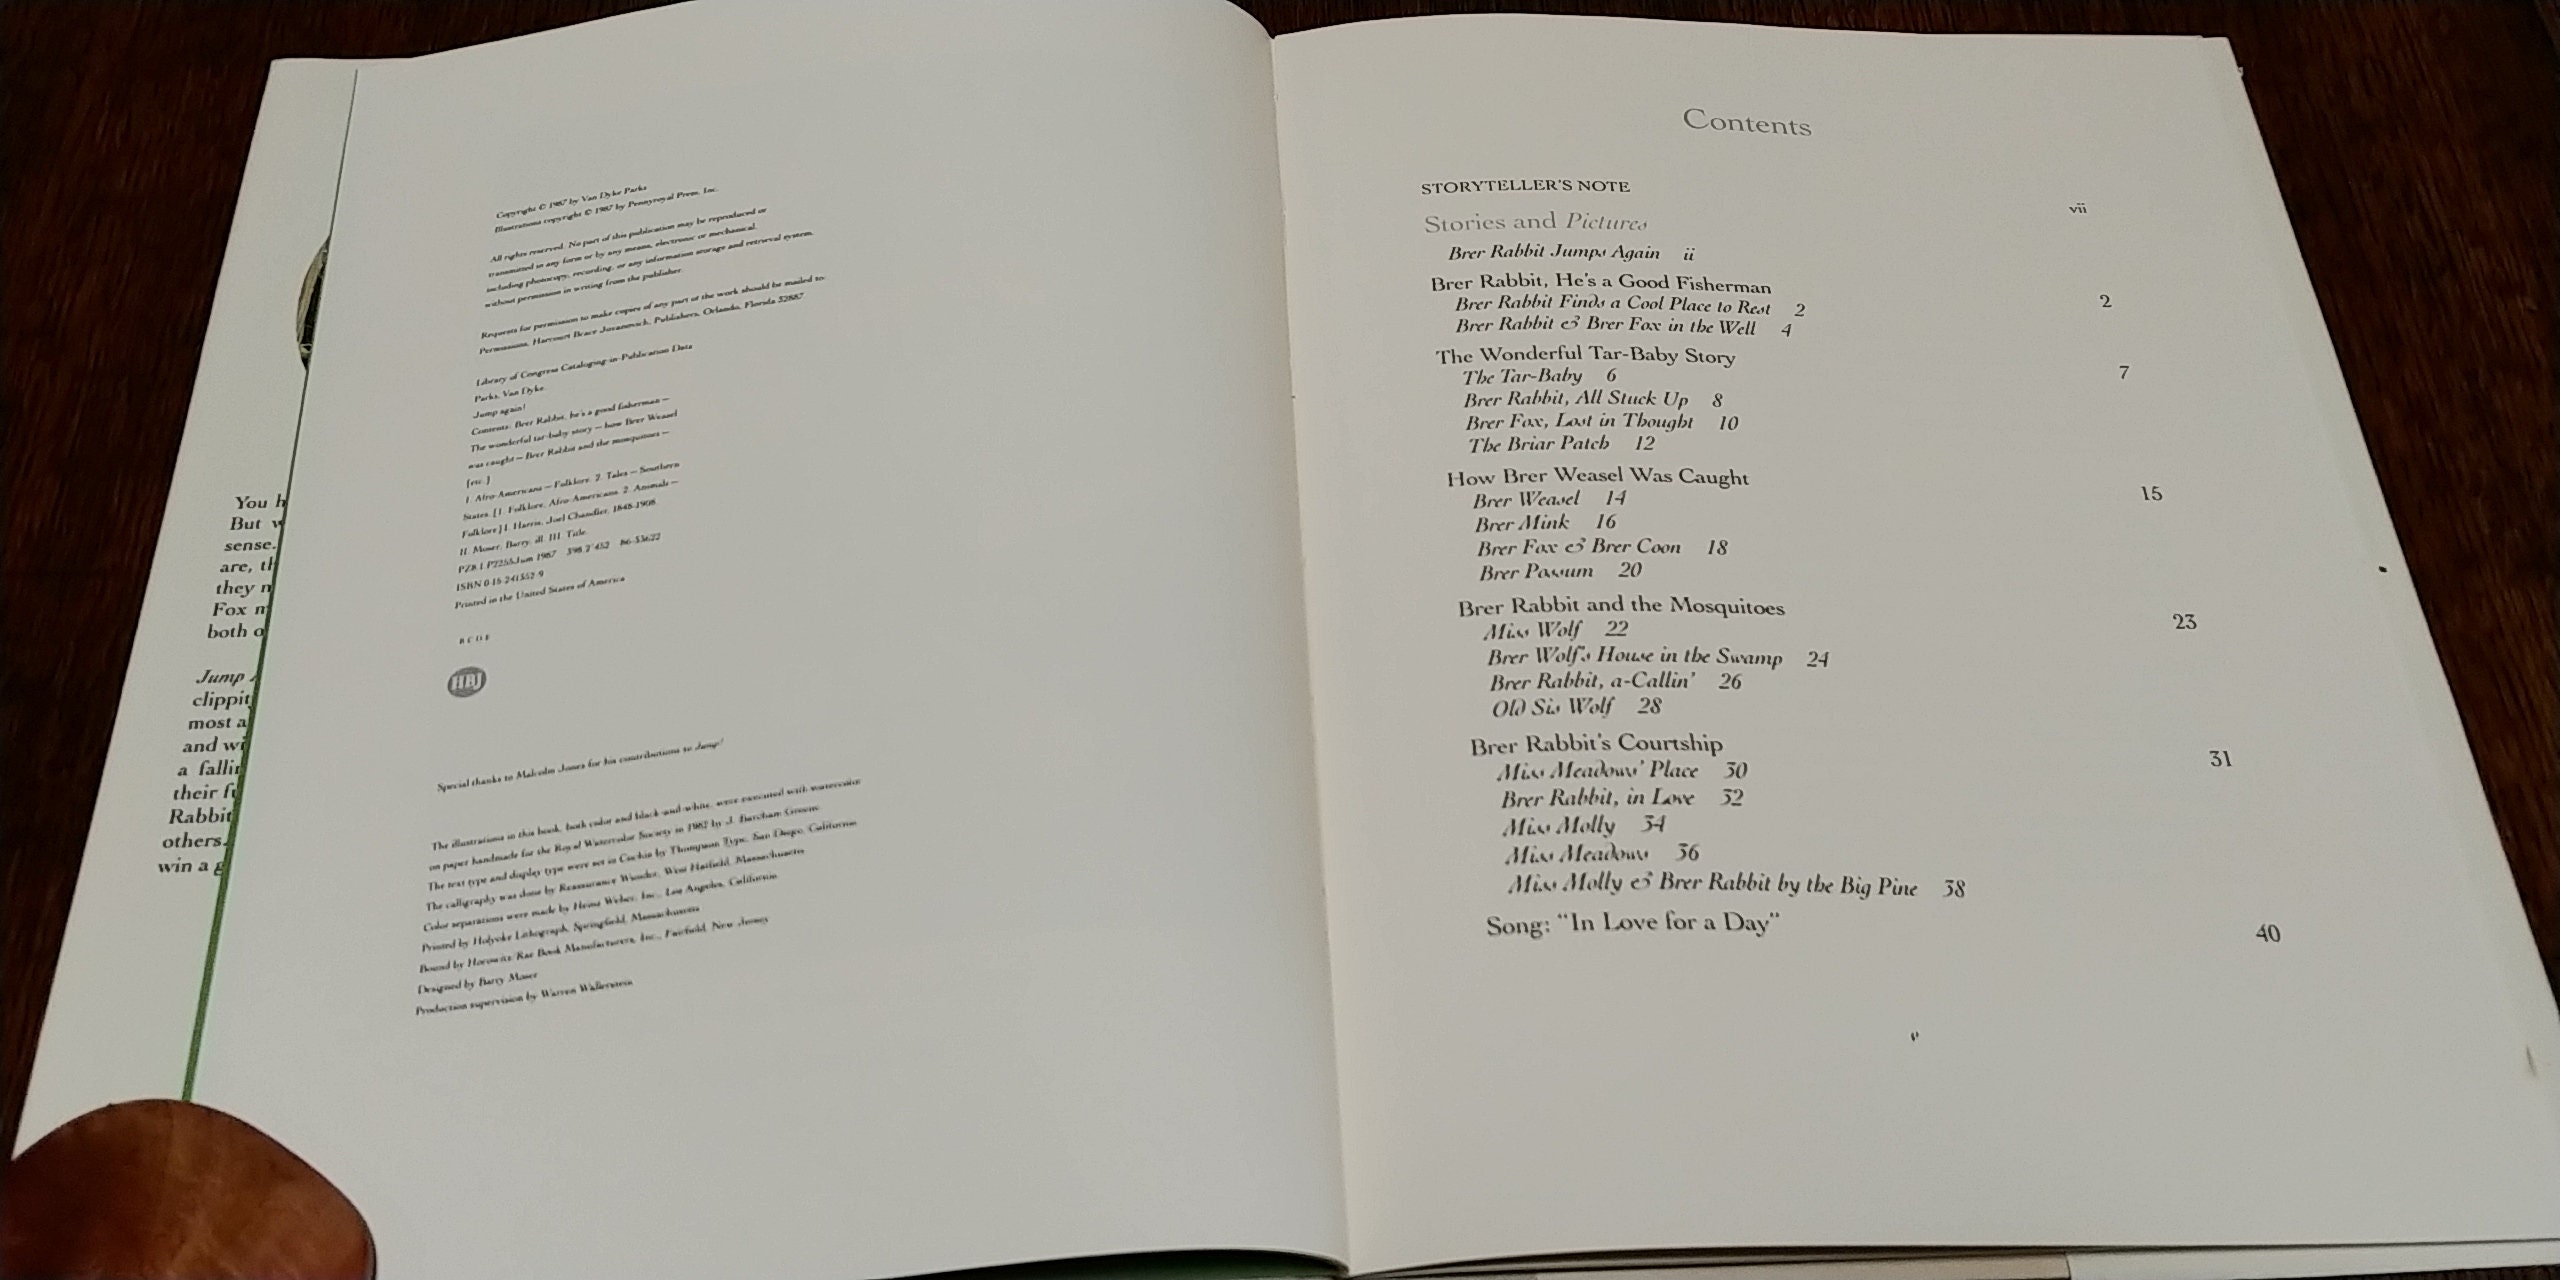 You h
But w
sense.
are, th
they m
Fox m
both o
Jump A
clippit
most a
and wi
a fallin
their fu
Rabbit
others.
win a g
Copyright © 1987 by Van Dyke Parks
Illustrations copyright © 1987 by Pennyroyal Press, Inc.
All rights reserved. No part of this publication may be reproduced or
transmitted in any form or by any means, electronic or mechanical,
including photocopy, recording, or any information storage and retrieval system,
without permission in writing from the publisher.
Requests for permission to make copies of any part of the work should be mailed to:
Permissions, Harcourt Brace Jovanovich, Publishers, Orlando, Florida 32887
Library of Congress Cataloging-in-Publication Data
Parks, Van Dyke.
Jump again!
Contents: Brer Rabbit, he's a good fisherman —
The wonderful tar-baby story — how Brer Weasel
was caught — Brer Rabbit and the mosquitoes —
[etc.]
1. Afro-Americans — Folklore. 2. Tales — Southern
States. [1. Folklore, Afro-Americans. 2. Animals —
Folklore] I. Harris, Joel Chandler, 1848-1908.
II. Moser, Barry, ill. III. Title.
PZ8.1.P2255Jum 1987 398.2'452 86-33622
ISBN 0-15-241352-9
Printed in the United States of America
B C D E
HBJ
Special thanks to Malcolm Jones for his contributions to Jump!
The illustrations in this book, both color and black-and-white, were executed with watercolor
on paper handmade for the Royal Watercolor Society in 1982 by J. Barcham Greene.
The text type and display type were set in Cochin by Thompson Type, San Diego, California
The calligraphy was done by Reassurance Wunder, West Hatfield, Massachusetts
Color separations were made by Heinz Weber, Inc., Los Angeles, California
Printed by Holyoke Lithograph, Springfield, Massachusetts
Bound by Horowitz/Rae Book Manufacturers, Inc., Fairfield, New Jersey
Designed by Barry Moser
Production supervision by Warren Wallerstein
Contents
STORYTELLER'S NOTE vii
Stories and Pictures
Brer Rabbit Jumps Again ii
Brer Rabbit, He's a Good Fisherman 2
Brer Rabbit Finds a Cool Place to Rest 2
Brer Rabbit & Brer Fox in the Well 4
The Wonderful Tar-Baby Story 7
The Tar-Baby 6
Brer Rabbit, All Stuck Up 8
Brer Fox, Lost in Thought 10
The Briar Patch 12
How Brer Weasel Was Caught 15
Brer Weasel 14
Brer Mink 16
Brer Fox & Brer Coon 18
Brer Possum 20
Brer Rabbit and the Mosquitoes 23
Miss Wolf 22
Brer Wolf's House in the Swamp 24
Brer Rabbit, a-Callin' 26
Old Sis Wolf 28
Brer Rabbit's Courtship 31
Miss Meadows' Place 30
Brer Rabbit, in Love 32
Miss Molly 34
Miss Meadows 36
Miss Molly & Brer Rabbit by the Big Pine 38
Song: "In Love for a Day" 40
v